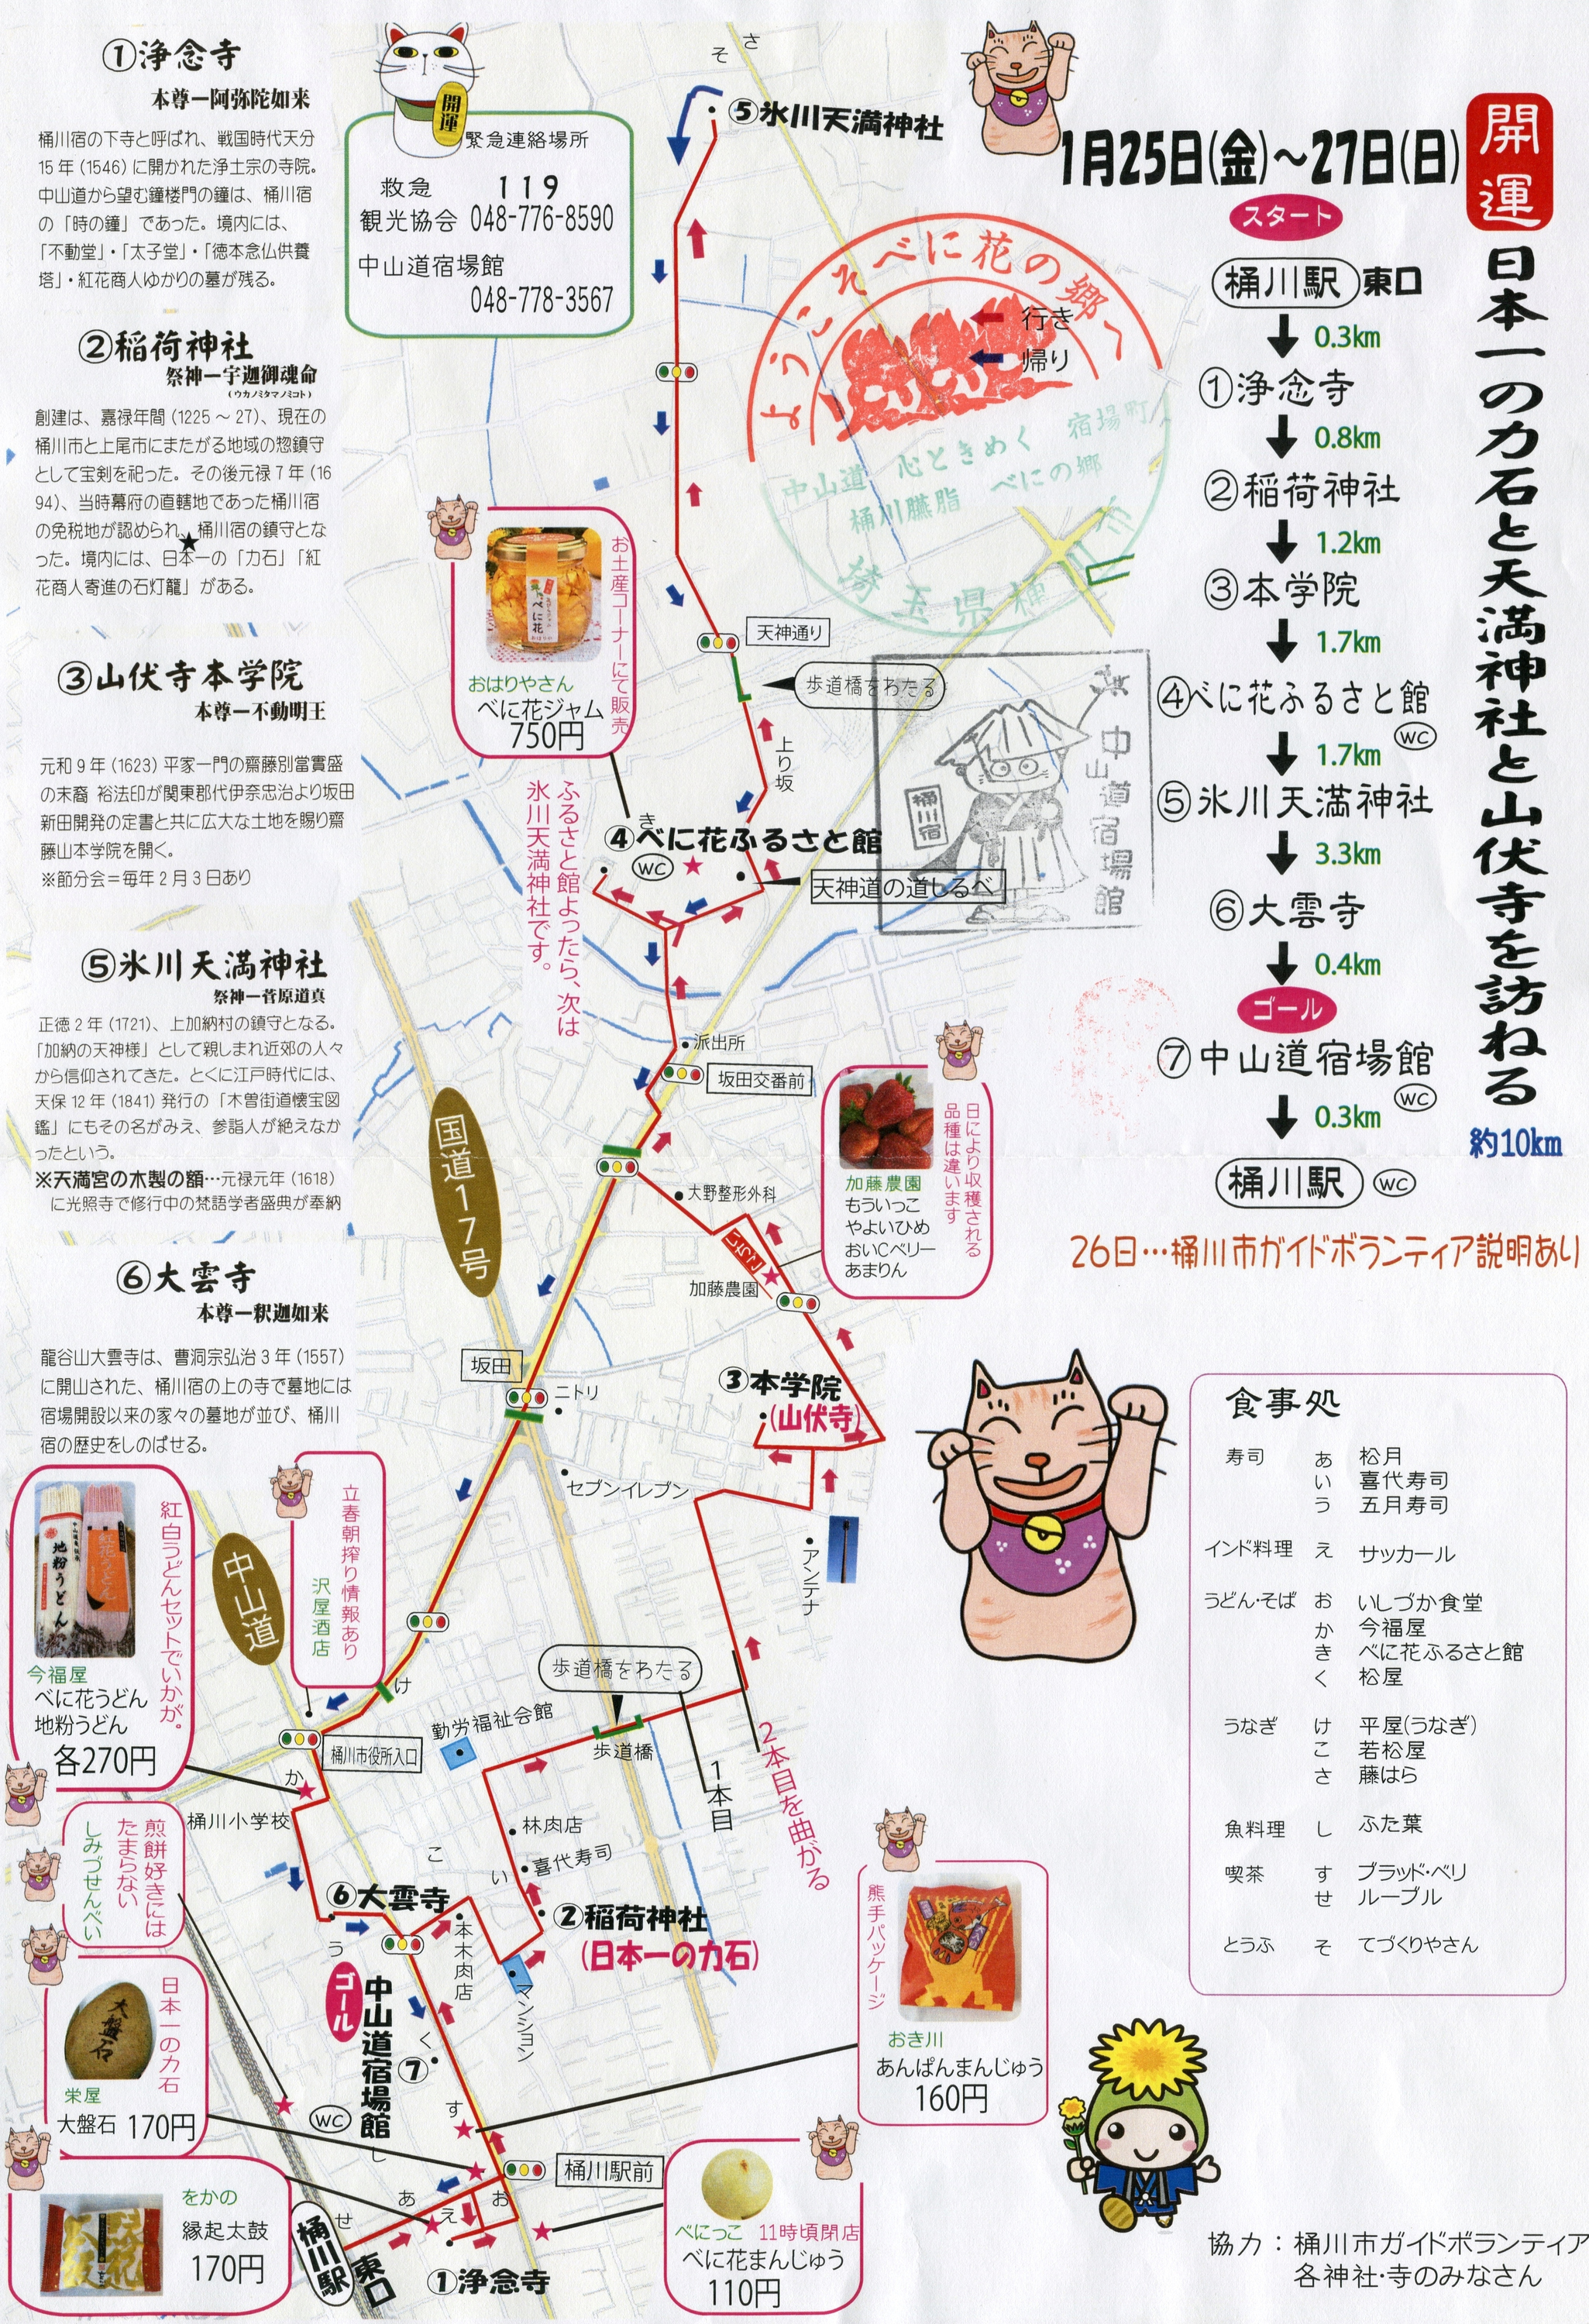 ①浄念寺
本尊ー阿弥陀如来
桶川宿の下寺と呼ばれ、戦国時代天分
15年(1546)に開かれた浄土宗の寺院。
中山道から望む鐘楼門の鐘は、桶川宿
の「時の鐘」であった。境内には、
「不動堂」・「太子堂」・「徳本念仏供養
塔」・紅花商人ゆかりの墓が残る。
②稲荷神社
祭神ー宇迦御魂命
(ウカノミタマノミコト)
創建は、嘉禄年間(1225～27)、現在の
桶川市と上尾市にまたがる地域の惣鎮守
として宝剣を祀った。その後元禄7年(16
94)、当時幕府の直轄地であった桶川宿
の免税地が認められ、桶川宿の鎮守とな
った。境内には、日本一の「力石」「紅
花商人寄進の石灯籠」がある。
③山伏寺本学院
本尊ー不動明王
元和9年(1623)平家一門の齋藤別當實盛
の末裔 裕法印が関東郡代伊奈忠治より坂田
新田開発の定書と共に広大な土地を賜り齋
藤山本学院を開く。
※節分会＝毎年2月3日あり
⑤氷川天満神社
祭神ー菅原道真
正徳2年(1721)、上加納村の鎮守となる。
「加納の天神様」として親しまれ近郊の人々
から信仰されてきた。とくに江戸時代には、
天保12年(1841)発行の「木曽街道懐宝図
鑑」にもその名がみえ、参詣人が絶えなか
ったという。
※天満宮の木製の額…元禄元年(1618)
に光照寺で修行中の梵語学者盛典が奉納
⑥大雲寺
本尊ー釈迦如来
龍谷山大雲寺は、曹洞宗弘治3年(1557)
に開山された、桶川宿の上の寺で墓地には
宿場開設以来の家々の墓地が並び、桶川
宿の歴史をしのばせる。
開運
緊急連絡場所
救急 119
観光協会 048-776-8590
中山道宿場館
048-778-3567
そ
さ
⑤氷川天満神社
ようこそべに花の郷へ
行き
帰り
中山道 心ときめく 宿場町
桶川臙脂 べにの郷
埼玉県桶川
天神通り
歩道橋をわたる
上り坂
お土産コーナーにて販売
べに花
おはりやさん
べに花ジャム
750円
き
④べに花ふるさと館
WC
天神道の道しるべ
ふるさと館よったら、次は
氷川天満神社です。
中山道宿場館
桶川宿
派出所
坂田交番前
国道17号
大野整形外科
いちご
加藤農園
日により収穫される
品種は違います
加藤農園
もういっこ
やよいひめ
おいCベリー
あまりん
坂田
ニトリ
③本学院
(山伏寺)
セブンイレブン
アンテナ
中山道
立春朝搾り情報あり
沢屋酒店
紅白うどんセットでいかが。
地粉うどん
紅花うどん
今福屋
べに花うどん
地粉うどん
各270円
け
桶川市役所入口
勤労福祉会館
歩道橋をわたる
歩道橋
1本目
2本目を曲がる
か
桶川小学校
林肉店
喜代寿司
こ
い
煎餅好きには
たまらない
しみづせんべい
⑥大雲寺
う
本木肉店
②稲荷神社
(日本一の力石)
マンション
ゴール
中山道宿場館
⑦
く
WC
す
し
日本一の力石
大盤石
栄屋
大盤石 170円
熊手パッケージ
おき川
あんぱんまんじゅう
160円
桶川駅前
をかの
縁起太鼓
170円
あ
え
お
せ
桶川駅
東口
①浄念寺
べにっこ 11時頃閉店
べに花まんじゅう
110円
開運
日本一の力石と天満神社と山伏寺を訪ねる
約10km
1月25日(金)～27日(日)
スタート
桶川駅 東口
0.3km
①浄念寺
0.8km
②稲荷神社
1.2km
③本学院
1.7km
④べに花ふるさと館
WC
1.7km
⑤氷川天満神社
3.3km
⑥大雲寺
0.4km
ゴール
⑦中山道宿場館
WC
0.3km
桶川駅 WC
26日…桶川市ガイドボランティア説明あり
食事処
寿司 あ 松月
い 喜代寿司
う 五月寿司
インド料理 え サッカール
うどん・そば お いしづか食堂
か 今福屋
き べに花ふるさと館
く 松屋
うなぎ け 平屋(うなぎ)
こ 若松屋
さ 藤はら
魚料理 し ふた葉
喫茶 す ブラッド・ベリ
せ ルーブル
とうふ そ てづくりやさん
協力：桶川市ガイドボランティア
各神社・寺のみなさん